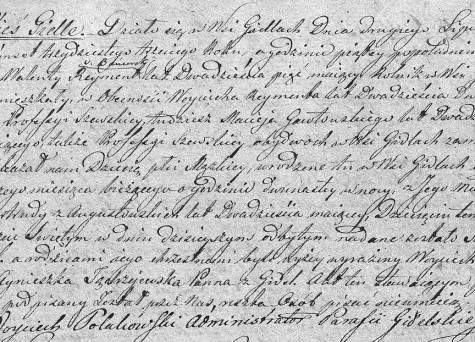 Wieś Gidle. Działo się w Wsi Gidlach Dnia drugiego Lipca
set trzydziestego trzeciego Roku, o godzinie piątej popołudniu
Walenty Reyment lat Dwadzieścia pięć maiący Rolnik w Wsi
mieszkały, w Obecności Woyciecha Reymenta lat Dwadzieścia
Professyi Szewskiey, tudzież Macieja Gawłowskiego lat Dwadzieścia
cego, także Professyi Szewskiey obydwóch w Wsi Gidlach zam
kazał nam Dziecię płci Męzkiey, urodzone tu w Wsi Gidlach
szego miesiąca bieżącego o godzinie dwunastey w nocy, z Jego
z Augustowskich lat Dwadzieścia maiącey, Dziecięciu
Świętym w dniu dzisieyszym odbytym nadane zostało
a rodzicami iego chrzestnemi byli wyżey wyrażony Woyciech
Agnieszka Panna z Gidel. Akt ten stawaiącym
podpisany Został przez Nas, reszta Osób pisać nieumieią
Woyciech Polakowski Administrator Parafii Gidelskiey